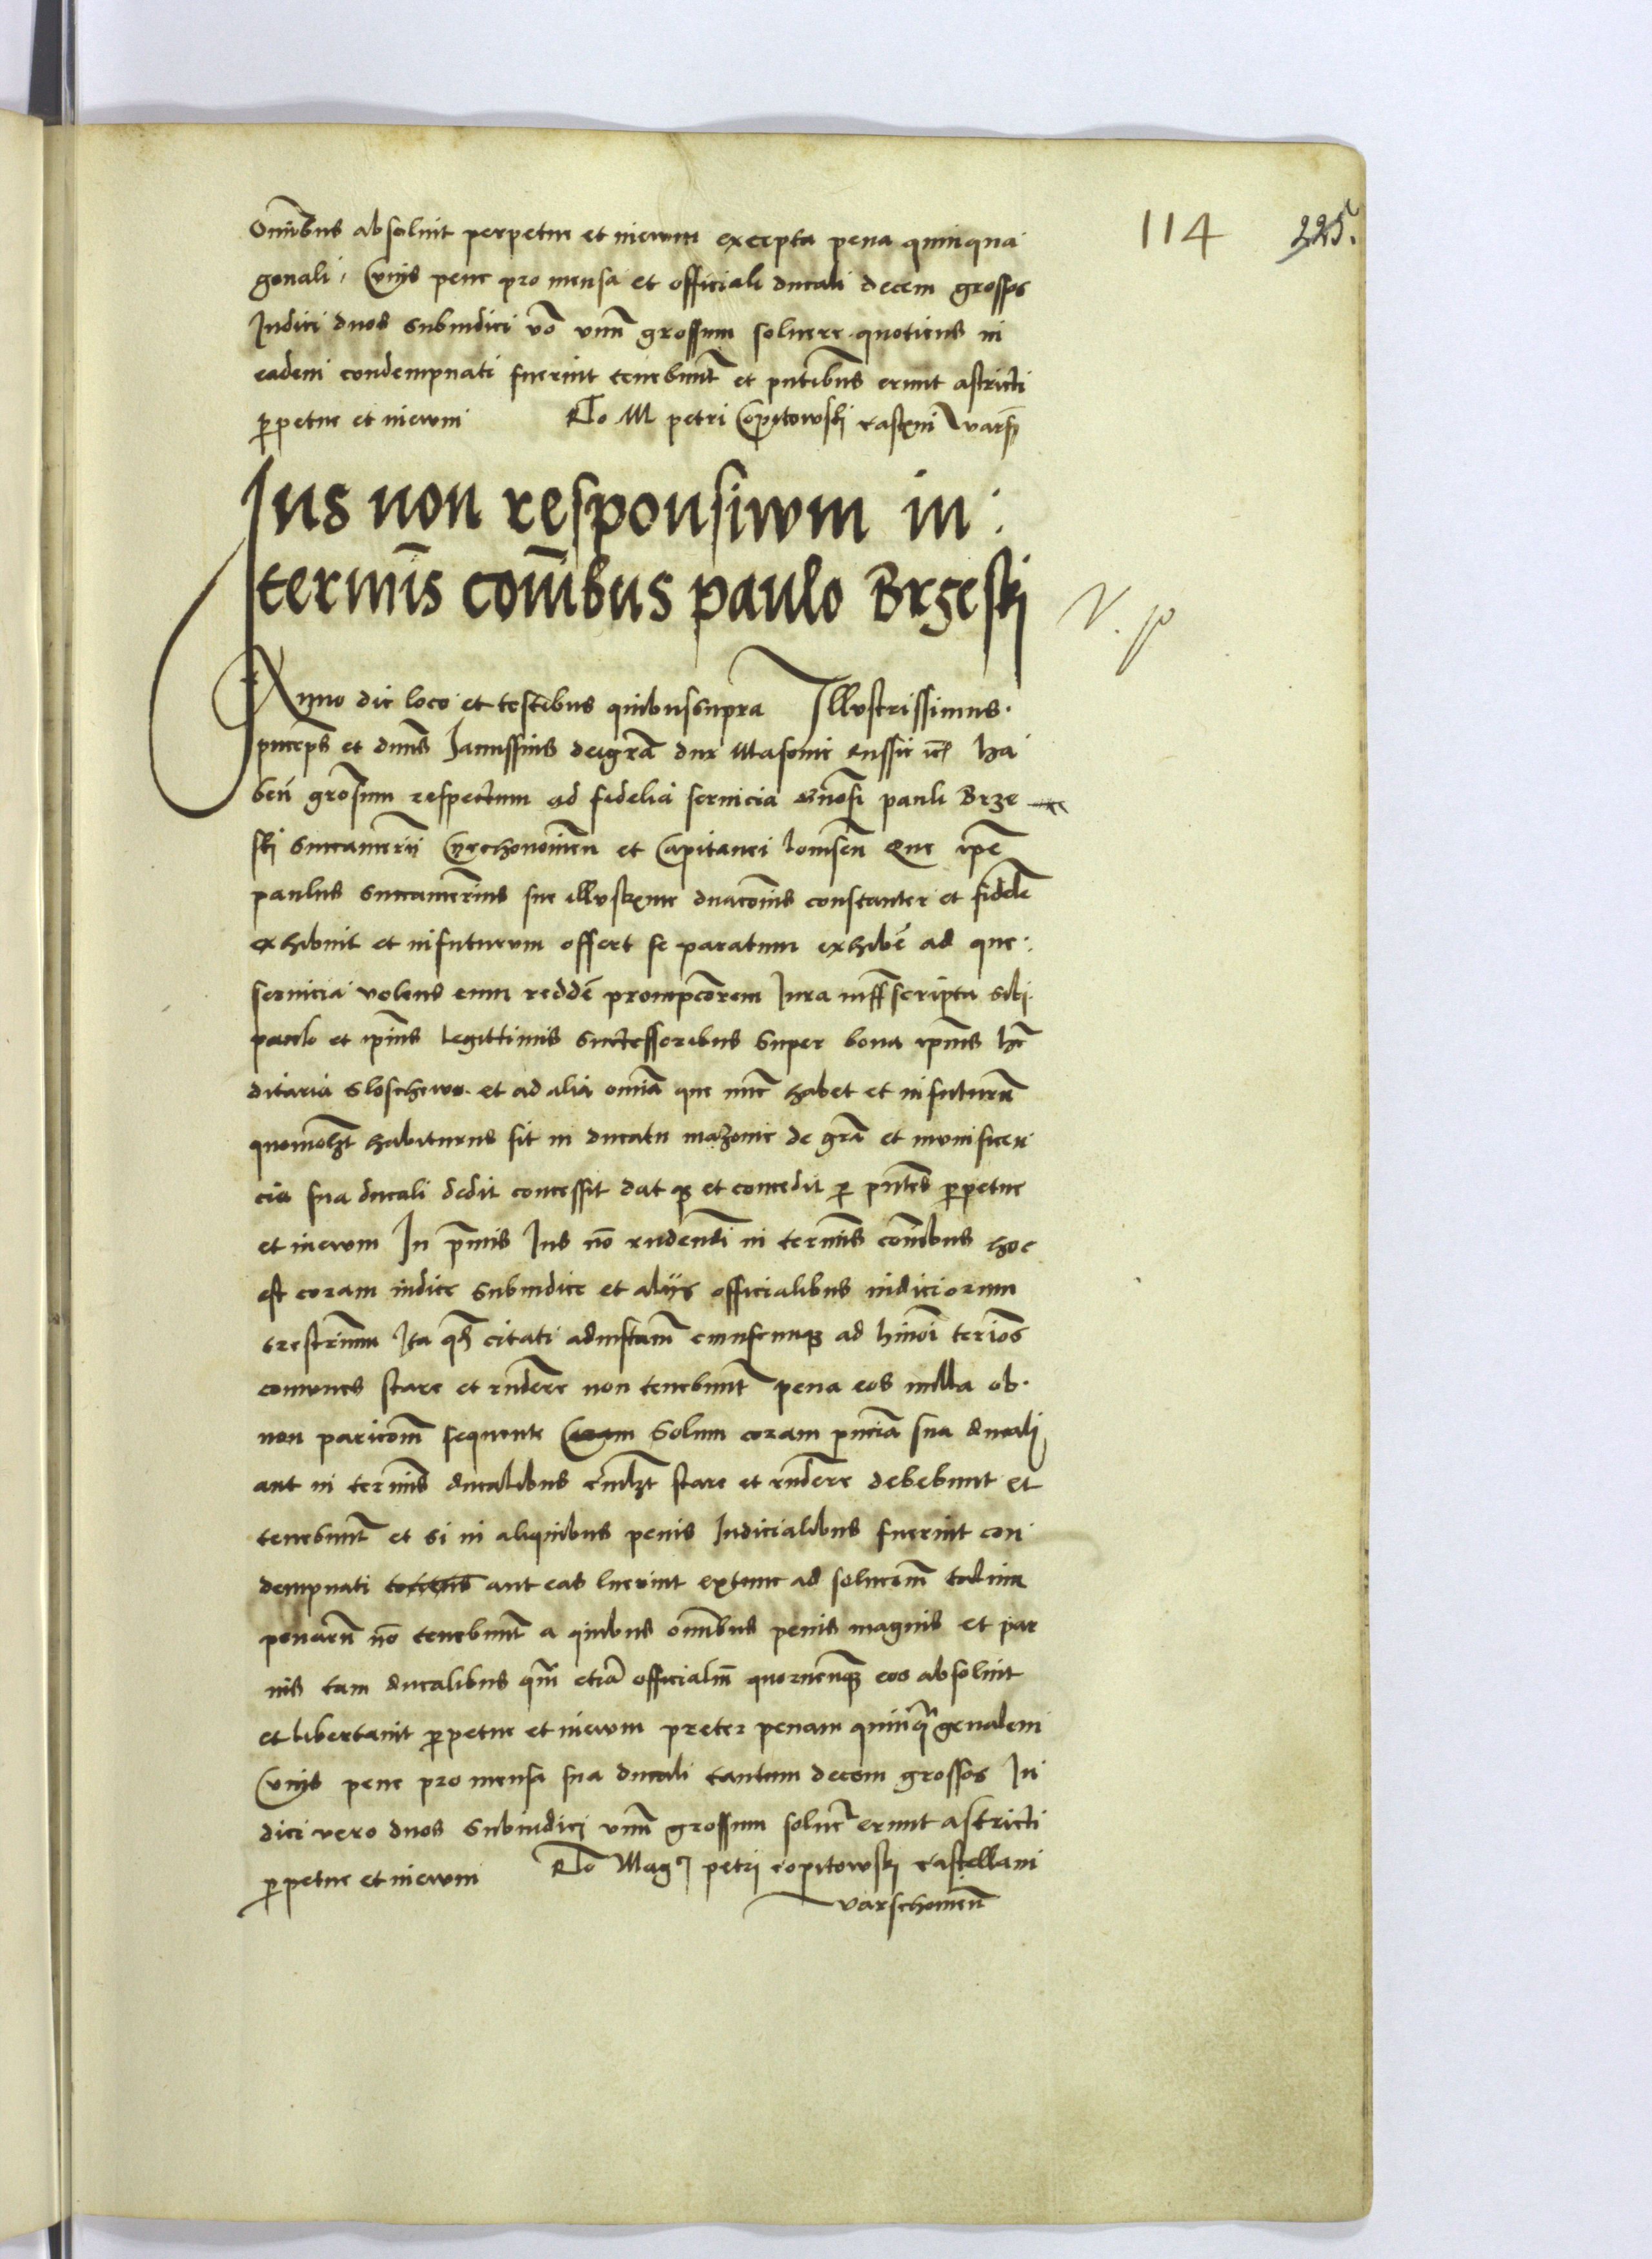 114 225.
Om̄ibus absoluit perpetue et inewm excepta pena quinqua
genali, Cuius pene pro mensa et officiali ducali decem grossos
Iudici duos Subiudici vō vnū grossum soluere quotiens in
eadem condempnati fuerint tenebunt̄ et pn̄tibus erunt astricti
ꝑpetue et inewm Rᵒ M petri Copitowski castꝫni varsꝫ
Jus non responsiwm in
termīs com̄ībus paulo Brzeski
V. p
Anno die loco et testibus quibussupra Illustrissimus
princeps et dn̄us Janussius deigr̄a dux Masouie Russie ꝛcꝫ ha
ben̄ gr̄osum respectum ad fidelia seruicia gn̄osi pauli Brze
ski Succamerīi Cyrchonomen̄ et Capitanei lomsen̄ Que ip̄e
paulus Succamerīus sue illustrme dn̄acionis constanter et fidelr̄
exhibuit et infuturum offert se paratum exhibē ad que
seruicia volens eum reddē prompciorem Iura inffrascripta sibi
paulo et ip̄ius legittimis Successoribus Super bona ip̄ius here
ditaria Sloschewo et ad alia om̄ia que nunc habet et infuturū
quomolꝫt habiturus sit in ducatu mazouie de grā et munificen
cia sua ducali dedit concessit dat qꝫ et concedit ꝑ pn̄tes ꝑpetue
et inewm In p̄mis Ius nō rn̄dendi in termīs com̄ībus hoc
est coram iudice Subiudice et alijs officialibus iudiciorum
trestrium Ita qd̄ citati adinstan̄ cuiuscumqꝫ ad hm̄oi terīos
comunes stare et rn̄dere non tenebunt̄ pena eos nulla ob
non paricion̄ sequente Solum coram pn̄cia sua ducali
aut in termīs ducalibus stare et rn̄dere debebunt et
tenebunt̄ et si in aliquibus penis Iudicialibus fuerint con
dempnati aut eas luerint extunc ad soluciōem talium
penarū nō tenebunt̄ a quibus om̄ibus penis magnis et par
uis tam ducalibus qm̄ etiā officialiū quorumcumqꝫ eos absoluit
et libertauit ꝑpetue et inewm preter penam quinqᵃgenalem
Cuius pene pro mensa sua ducali tantum decem grossos Iu
dici vero duos Subiudici vnū grossum soluē erunt astricti
ꝑpetue et inewm Rᵒ Magci petri Copitowski Castellani
varschouien̄